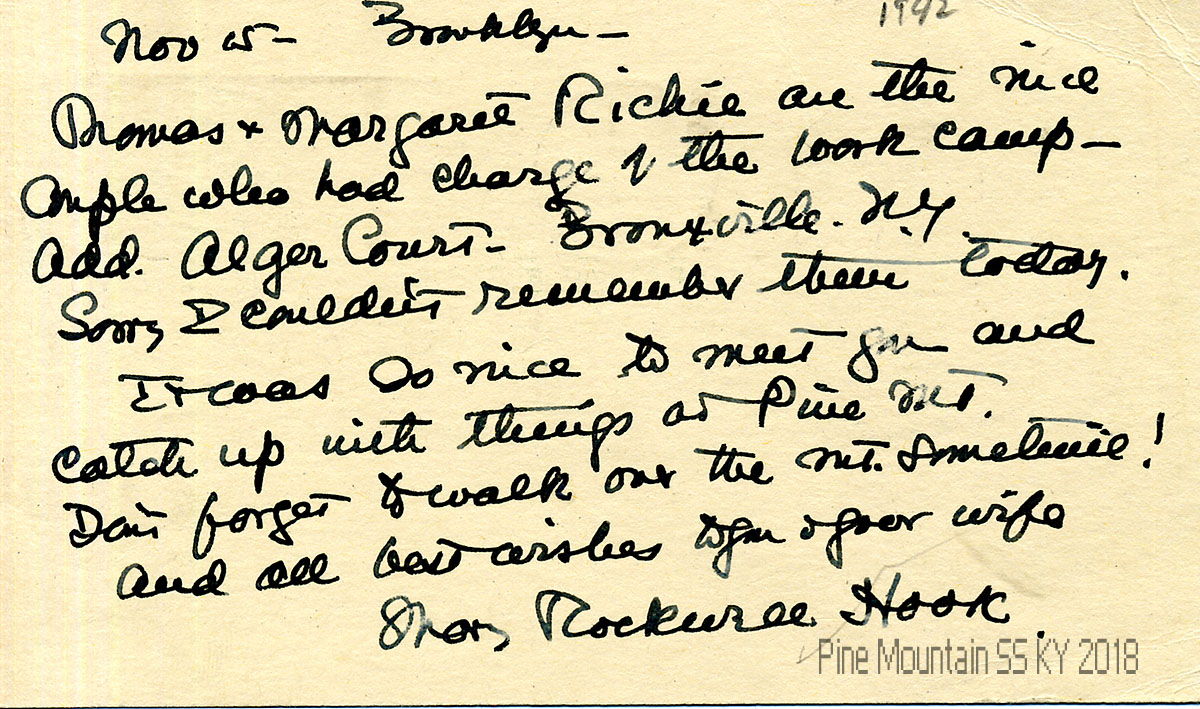 1942
Nov 15 - Brooklyn -
Thomas & Margaret Richie are the nice
couple who had charge of the work camp -
Add. Alger Court - Bronxville. N.Y.
Sorry I couldn't remember them today.
It was so nice to meet you and
catch up with things at Pine Mt.
Don't forget to walk over the Mt. sometime!
And all best wishes to you & your wife
Mary Rockwell Hook.
Pine Mountain SS KY 2018